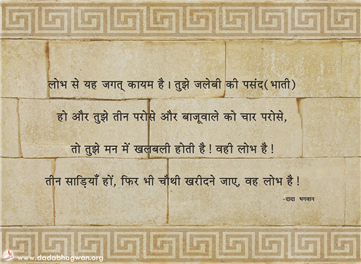 लोभ से यह जगत् कायम है। तुझे जलेबी की पसंद(भाती)
हो और तुझे तीन परोसे और बाजूवाले को चार परोसे,
तो तुझे मन में खलबली होती है! वही लोभ है!
तीन साड़ियाँ हों, फिर भी चौथी खरीदने जाए, वह लोभ है!
-दादा भगवान
www.dadabhagwan.org